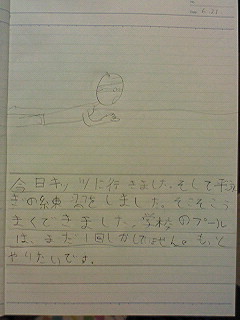 6.21
今日キッツに行きました。そして平およ
ぎの練習をしました。そこそこう
まくできました。学校のプール
は、まだ1回しかしてません。もっと
やりたいです。